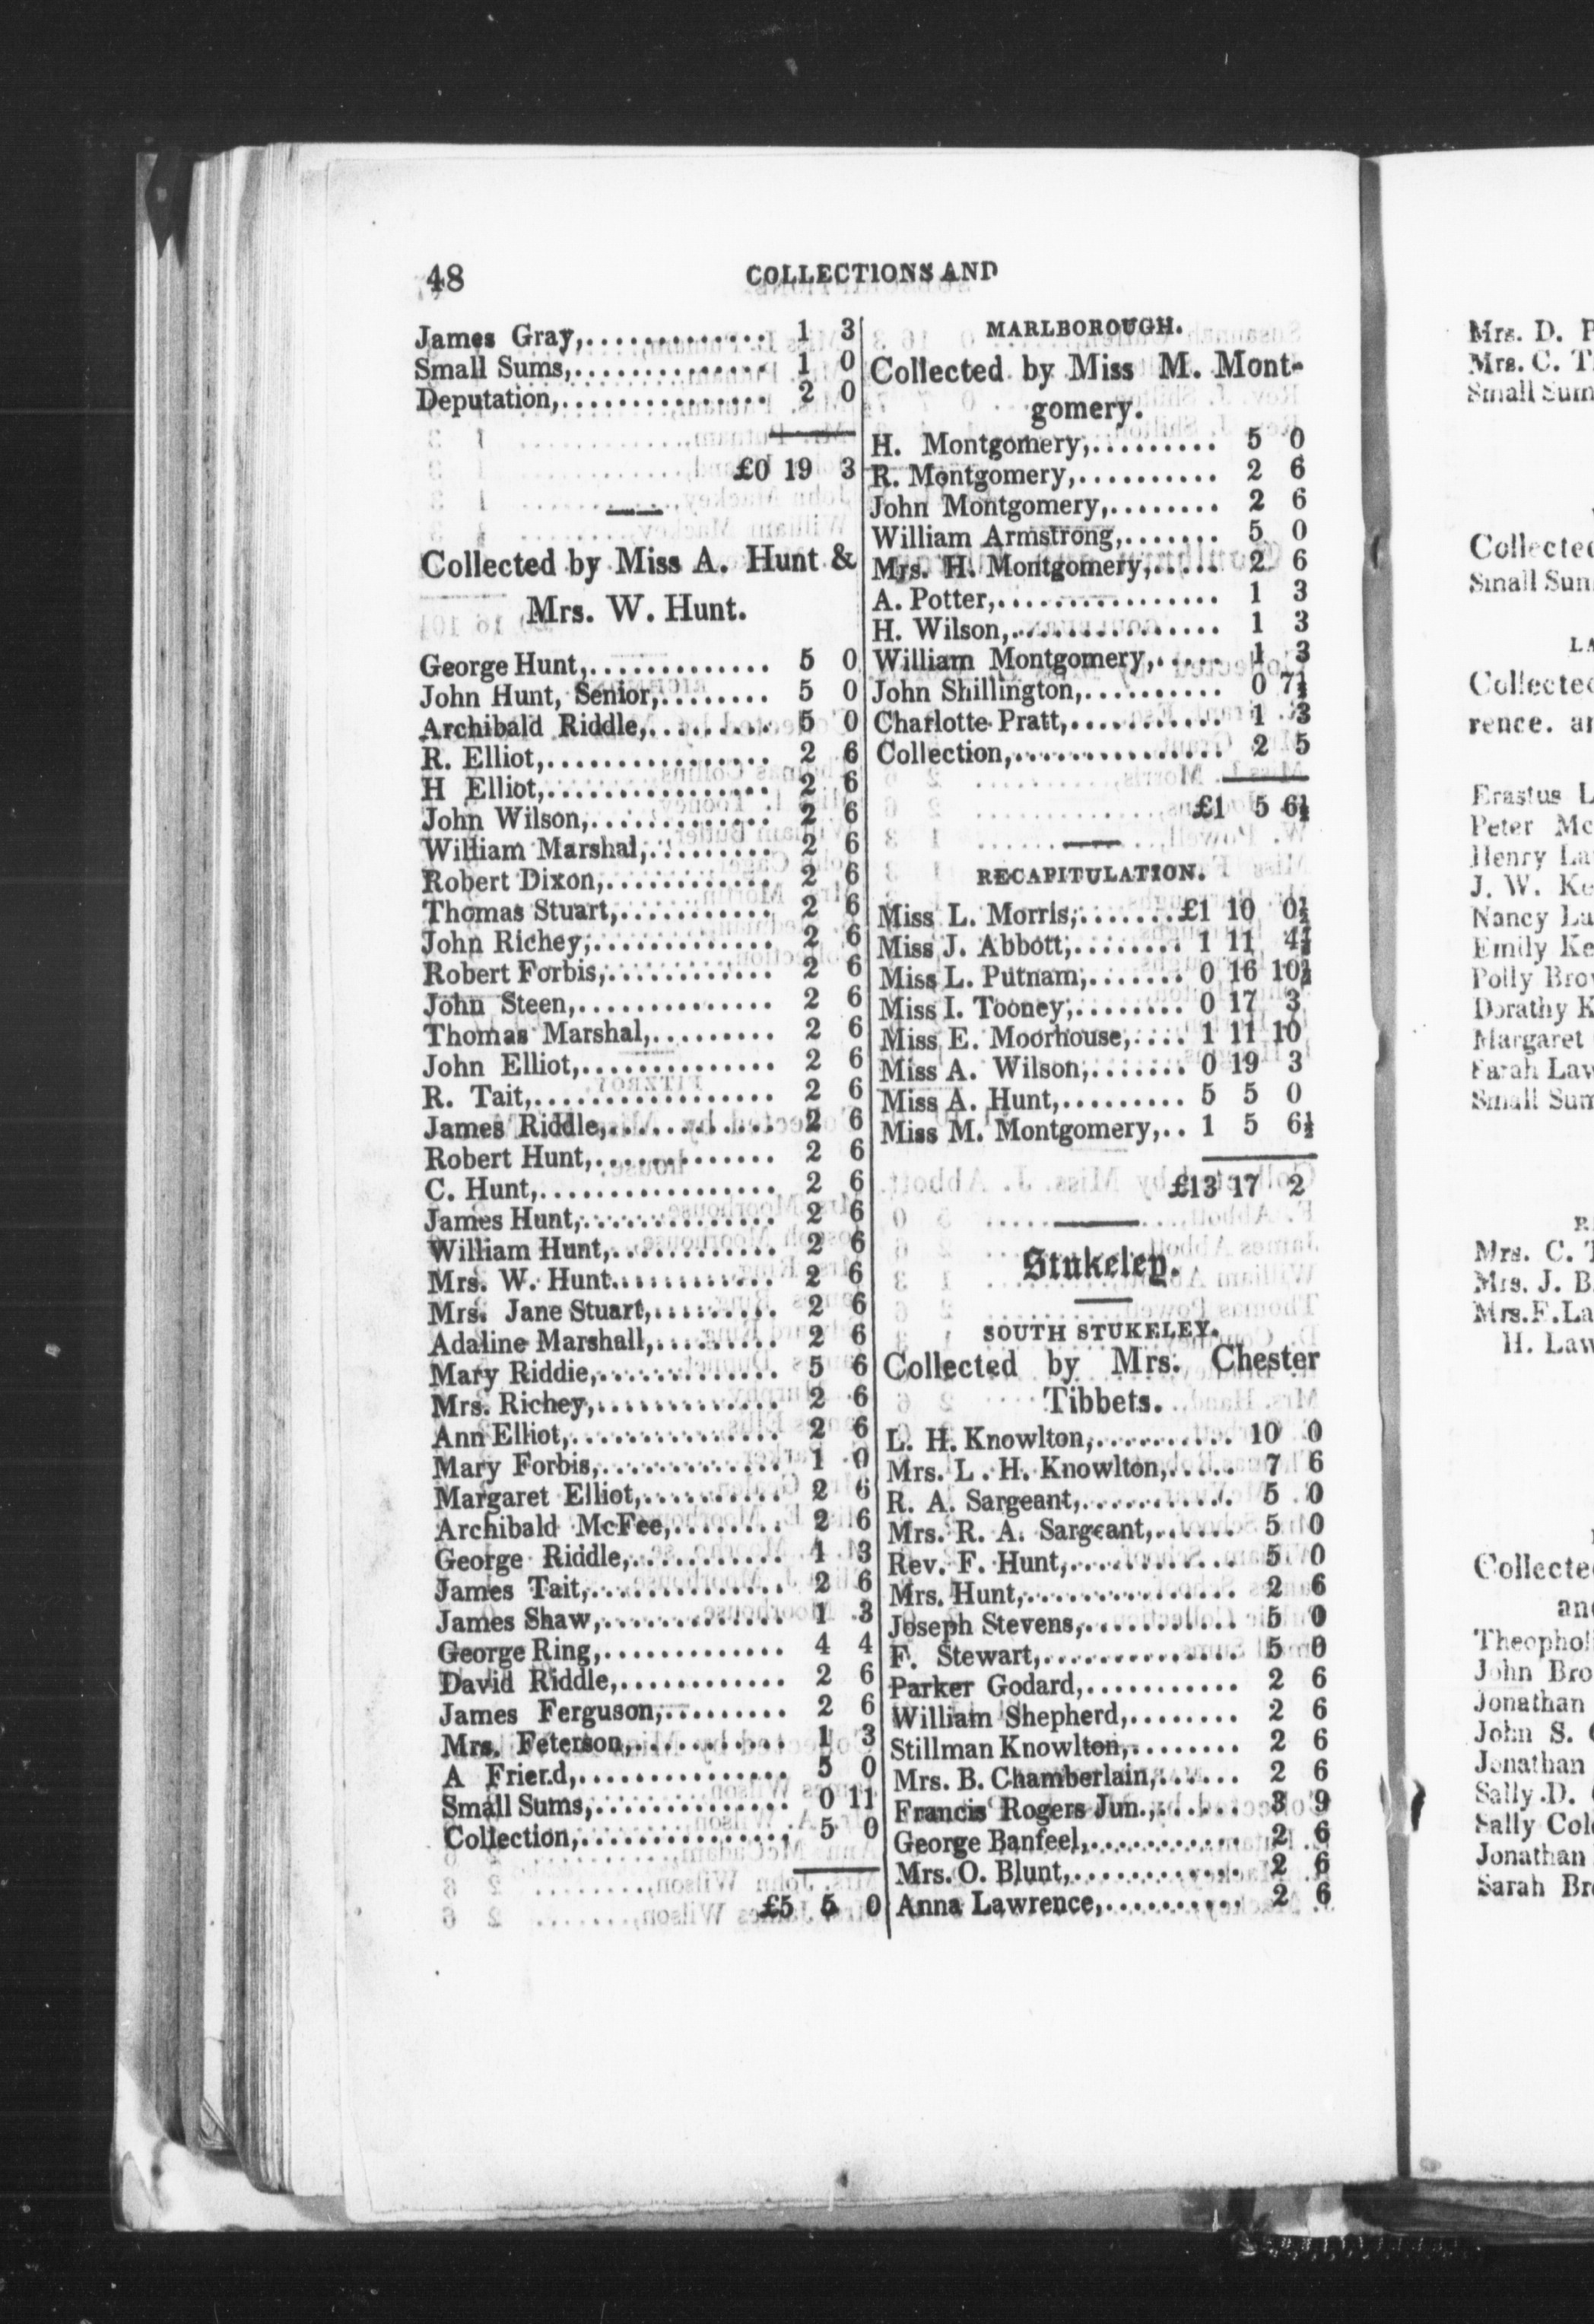 48
COLLECTIONS AND
James Gray,............. 1 3
Small Sums,.............. 1 0
Deputation,............... 2 0
£0 19 3
Collected by Miss A. Hunt &
Mrs. W. Hunt.
George Hunt,............. 5 0
John Hunt, Senior,........ 5 0
Archibald Riddle,......... 5 0
R. Elliot,................ 2 6
H Elliot,................. 2 6
John Wilson,............. 2 6
William Marshal,......... 2 6
Robert Dixon,............ 2 6
Thomas Stuart,........... 2 6
John Richey,............. 2 6
Robert Forbis,............ 2 6
John Steen,.............. 2 6
Thomas Marshal,......... 2 6
John Elliot,.............. 2 6
R. Tait,.................. 2 6
James Riddle,............ 2 6
Robert Hunt,............. 2 6
C. Hunt,................. 2 6
James Hunt,.............. 2 6
William Hunt,............ 2 6
Mrs. W. Hunt............ 2 6
Mrs. Jane Stuart,......... 2 6
Adaline Marshall,......... 2 6
Mary Riddie,............. 5 6
Mrs. Richey,............. 2 6
Ann Elliot,............... 2 6
Mary Forbis,............. 1 0
Margaret Elliot,.......... 2 6
Archibald McFee,........ 2 6
George Riddle,........... 1 3
James Tait,.............. 2 6
James Shaw,............. 1 3
George Ring,............. 4 4
David Riddle,............ 2 6
James Ferguson,......... 2 6
Mrs. Feterson,........... 1 3
A Friend,............... 5 0
Small Sums,.............. 0 11
Collection,................ 5 0
£5 5 0
MARLBOROUGH.
Collected by Miss M. Mont-
gomery.
H. Montgomery,......... 5 0
R. Montgomery,.......... 2 6
John Montgomery,........ 2 6
William Armstrong,....... 5 0
Mrs. H. Montgomery,..... 2 6
A. Potter,................ 1 3
H. Wilson,............... 1 3
William Montgomery,..... 1 3
John Shillington,.......... 0 7½
Charlotte Pratt,........... 1 3
Collection,............... 2 5
£1 5 6½
RECAPITULATION.
Miss L. Morris,.......£1 10 0½
Miss J. Abbott,........ 1 11 4½
Miss L. Putnam,....... 0 16 10½
Miss I. Tooney,........ 0 17 3
Miss E. Moorhouse,.... 1 11 10
Miss A. Wilson,....... 0 19 3
Miss A. Hunt,......... 5 5 0
Miss M. Montgomery,.. 1 5 6½
£13 17 2
Stukeley.
SOUTH STUKELEY.
Collected by Mrs. Chester
Tibbets.
L. H. Knowlton,.......... 10 0
Mrs. L. H. Knowlton,..... 7 6
R. A. Sargeant,........... 5 0
Mrs. R. A. Sargeant,...... 5 0
Rev. F. Hunt,............ 5 0
Mrs. Hunt,............... 2 6
Joseph Stevens,........... 5 0
F. Stewart,.............. 5 0
Parker Godard,........... 2 6
William Shepherd,........ 2 6
Stillman Knowlton,........ 2 6
Mrs. B. Chamberlain,...... 2 6
Francis Rogers Jun.,...... 3 9
George Banfeel,........... 2 6
Mrs. O. Blunt,............ 2 6
Anna Lawrence,.......... 2 6
Mrs. D.
Mrs. C.
Small
Collected
Small
Collected
rence.
Erastus
Peter
Henry
J. W.
Nancy
Emily
Polly
Dorathy
Margaret
Sarah
Small
Mrs. C.
Mrs. J.
Mrs. F.
H.
Collected
John
Jonathan
John S.
Jonathan
Sally D.
Sally
Jonathan
Sarah